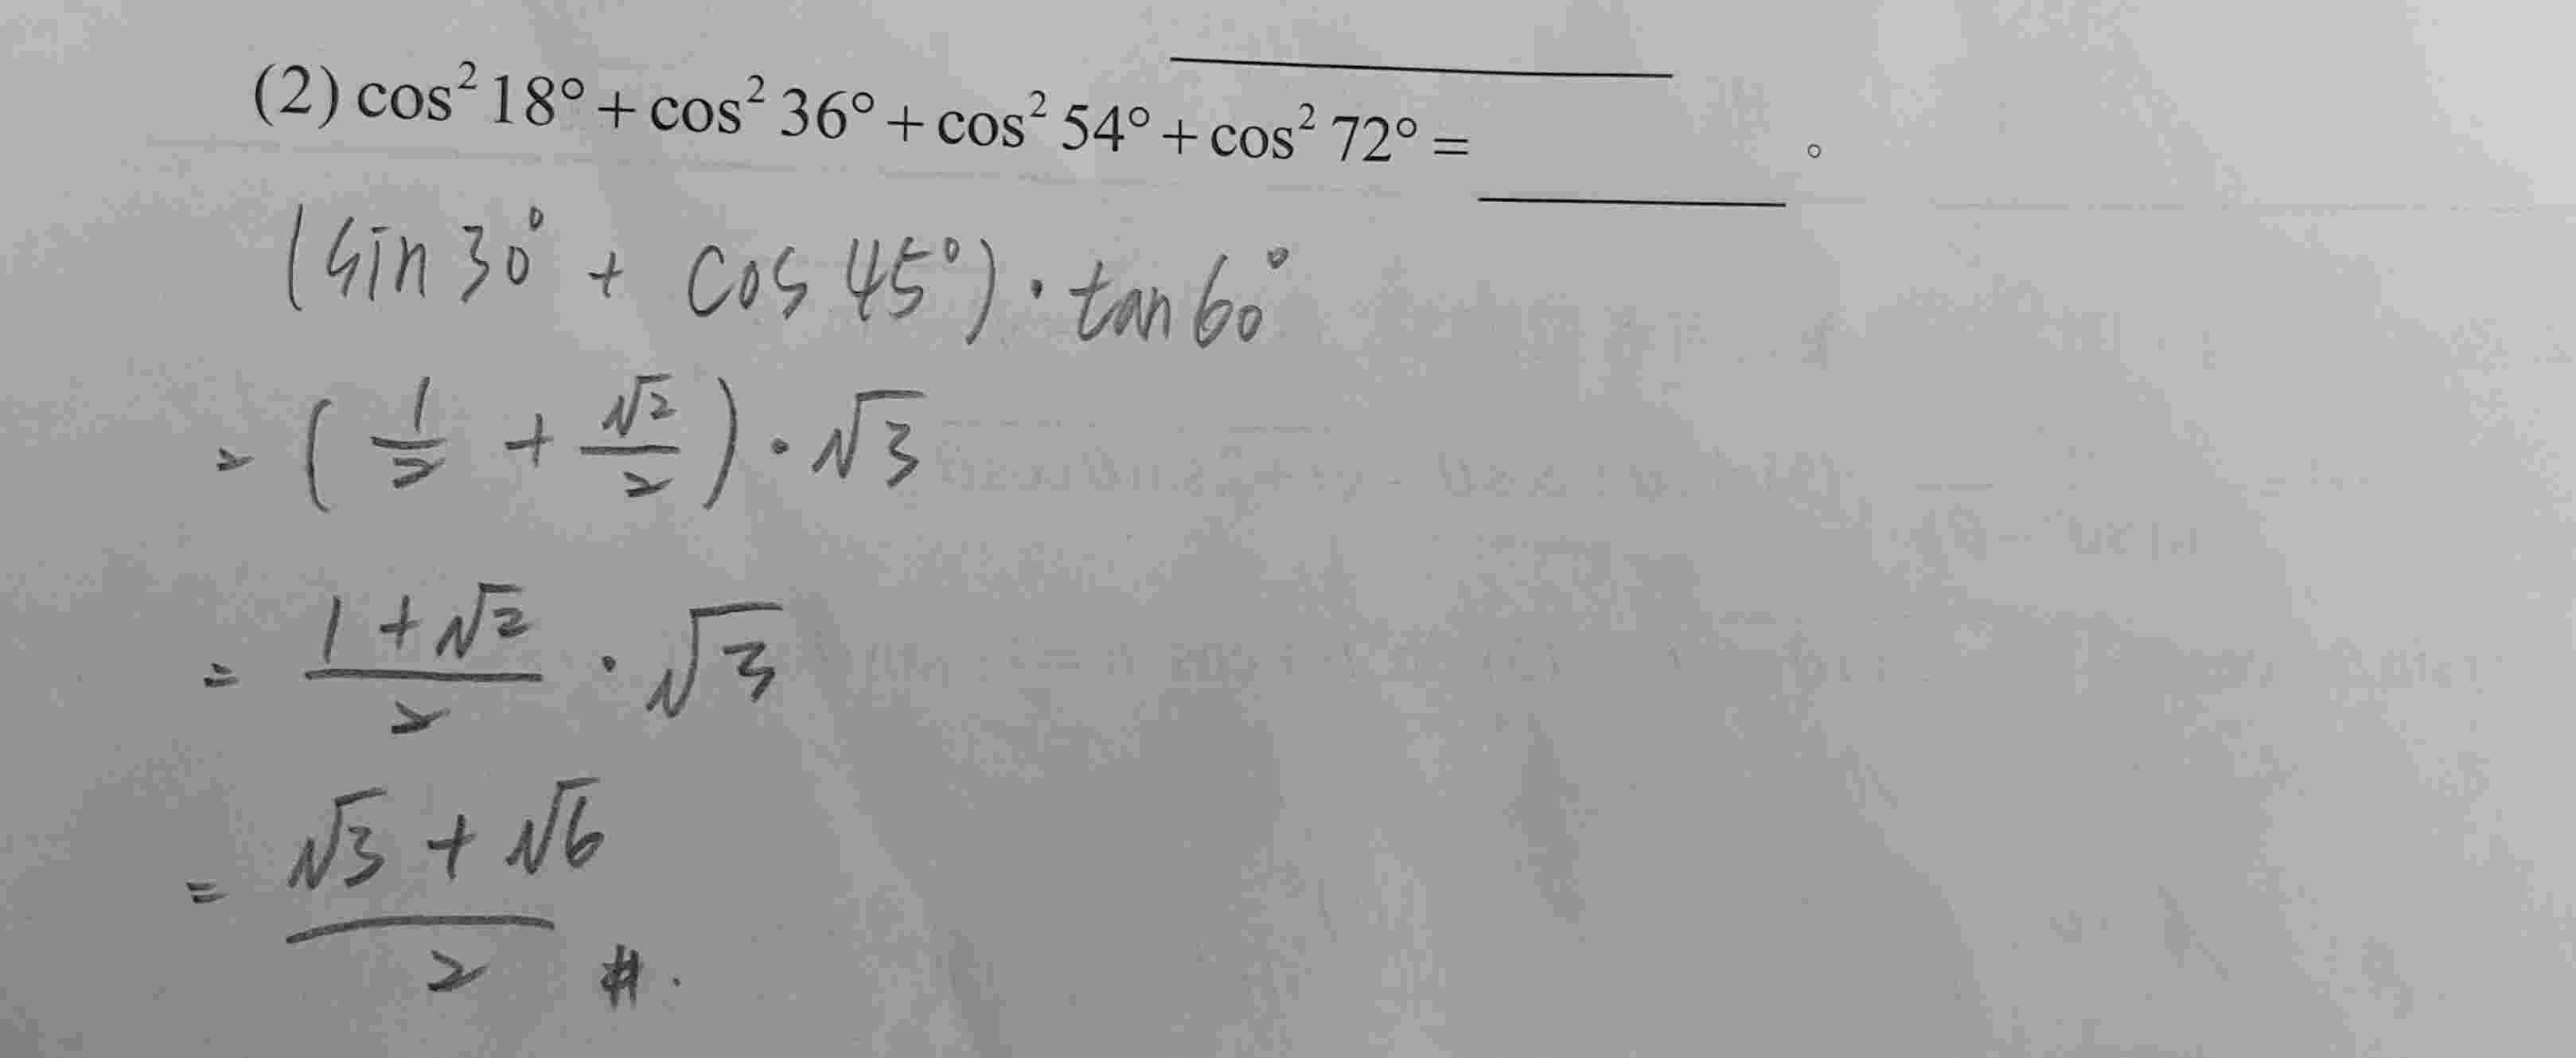 (2) cos² 18° + cos² 36° + cos² 54° + cos² 72° = ________ 。
(sin 30° + cos 45°) · tan 60°
= (1/2 + √2/2) · √3
= (1+√2)/2 · √3
= (√3 + √6)/2 #.